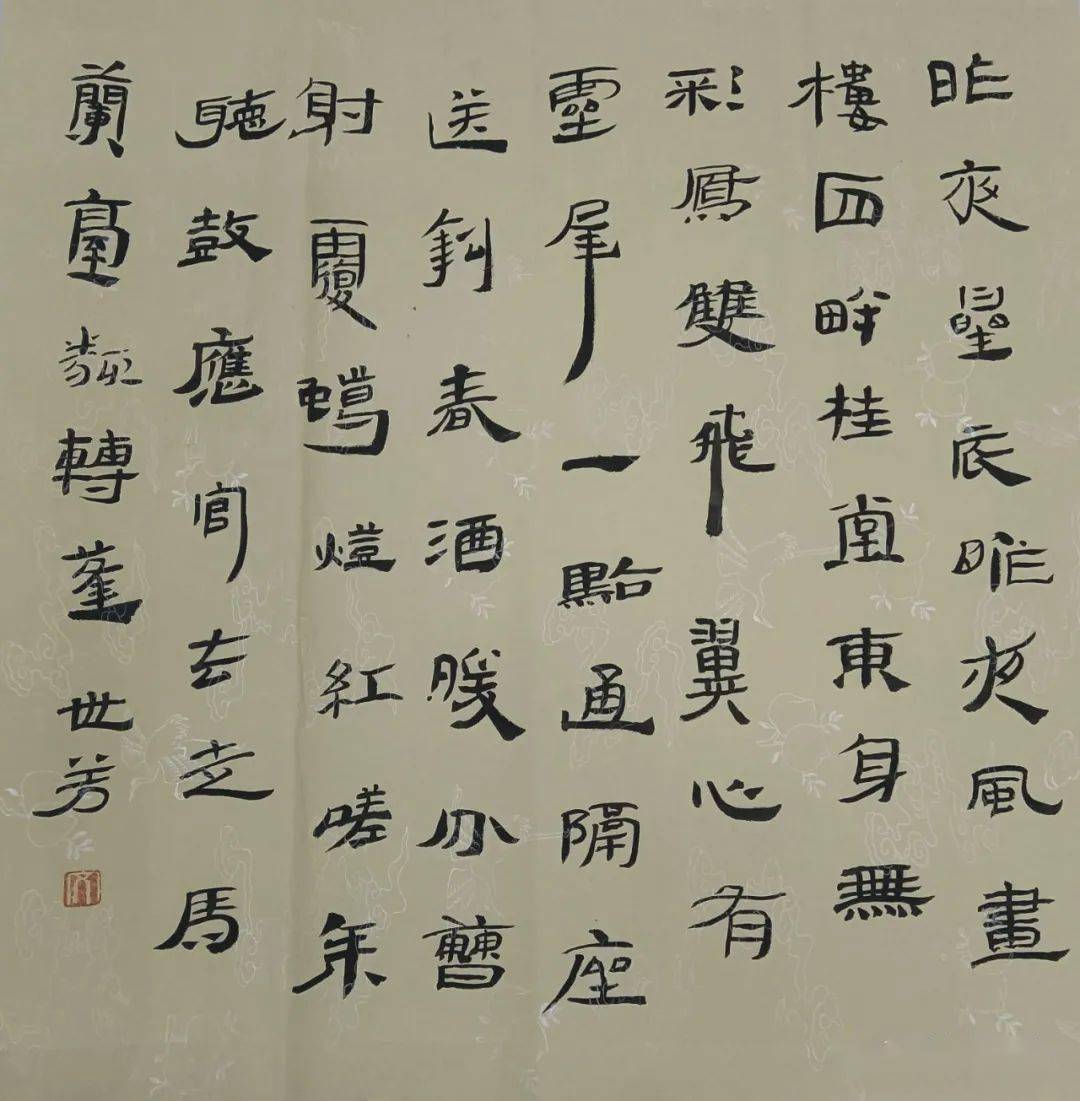 昨夜星辰昨夜風畫
樓西畔桂堂東身無
彩鳳雙飛翼心有
靈犀一點通隔座
送鉤春酒暖分曹
射覆蠟燈紅嗟余
聽鼓應官去走馬
蘭臺類轉蓬 世芳